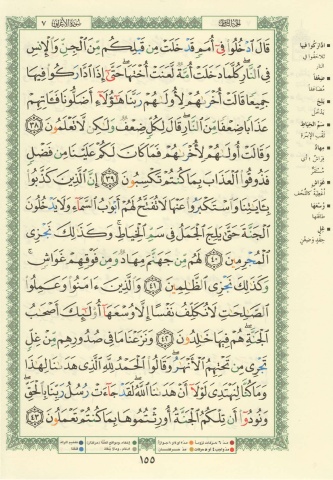 الجزء الثامن
سورة الأعراف ٧
قَالَ ادْخُلُوا فِي أُمَمٍ قَدْ خَلَتْ مِن قَبْلِكُم مِّنَ الْجِنِّ وَالْإِنسِ
فِي النَّارِ كُلَّمَا دَخَلَتْ أُمَّةٌ لَّعَنَتْ أُخْتَهَا حَتَّىٰ إِذَا ادَّارَكُوا فِيهَا
جَمِيعًا قَالَتْ أُخْرَاهُمْ لِأُولَاهُمْ رَبَّنَا هَٰؤُلَاءِ أَضَلُّونَا فَآتِهِمْ
عَذَابًا ضِعْفًا مِّنَ النَّارِ قَالَ لِكُلٍّ ضِعْفٌ وَلَٰكِن لَّا تَعْلَمُونَ ٣٨
وَقَالَتْ أُولَاهُمْ لِأُخْرَاهُمْ فَمَا كَانَ لَكُمْ عَلَيْنَا مِن فَضْلٍ
فَذُوقُوا الْعَذَابَ بِمَا كُنتُمْ تَكْسِبُونَ ٣٩ إِنَّ الَّذِينَ كَذَّبُوا
بِآيَاتِنَا وَاسْتَكْبَرُوا عَنْهَا لَا تُفَتَّحُ لَهُمْ أَبْوَابُ السَّمَاءِ وَلَا يَدْخُلُونَ
الْجَنَّةَ حَتَّىٰ يَلِجَ الْجَمَلُ فِي سَمِّ الْخِيَاطِ وَكَذَٰلِكَ نَجْزِي
الْمُجْرِمِينَ ٤٠ لَهُم مِّن جَهَنَّمَ مِهَادٌ وَمِن فَوْقِهِمْ غَوَاشٍ
وَكَذَٰلِكَ نَجْزِي الظَّالِمِينَ ٤١ وَالَّذِينَ آمَنُوا وَعَمِلُوا
الصَّالِحَاتِ لَا نُكَلِّفُ نَفْسًا إِلَّا وُسْعَهَا أُولَٰئِكَ أَصْحَابُ
الْجَنَّةِ هُمْ فِيهَا خَالِدُونَ ٤٢ وَنَزَعْنَا مَا فِي صُدُورِهِم مِّنْ غِلٍّ
تَجْرِي مِن تَحْتِهِمُ الْأَنْهَارُ وَقَالُوا الْحَمْدُ لِلَّهِ الَّذِي هَدَانَا لِهَٰذَا
وَمَا كُنَّا لِنَهْتَدِيَ لَوْلَا أَنْ هَدَانَا اللَّهُ لَقَدْ جَاءَتْ رُسُلُ رَبِّنَا بِالْحَقِّ
وَنُودُوا أَن تِلْكُمُ الْجَنَّةُ أُورِثْتُمُوهَا بِمَا كُنتُمْ تَعْمَلُونَ ٤٣
اداركوا فيها
تلاحقوا في
النار
ضعفا
مضاعفا
يلج
يدخل
سم الخياط
ثقب الإبرة
مهاد
فراش، أي
مستقر
غواش
أغطية كاللحف
وسعها
طاقتها
غل
حقد وضغن
١٥٥